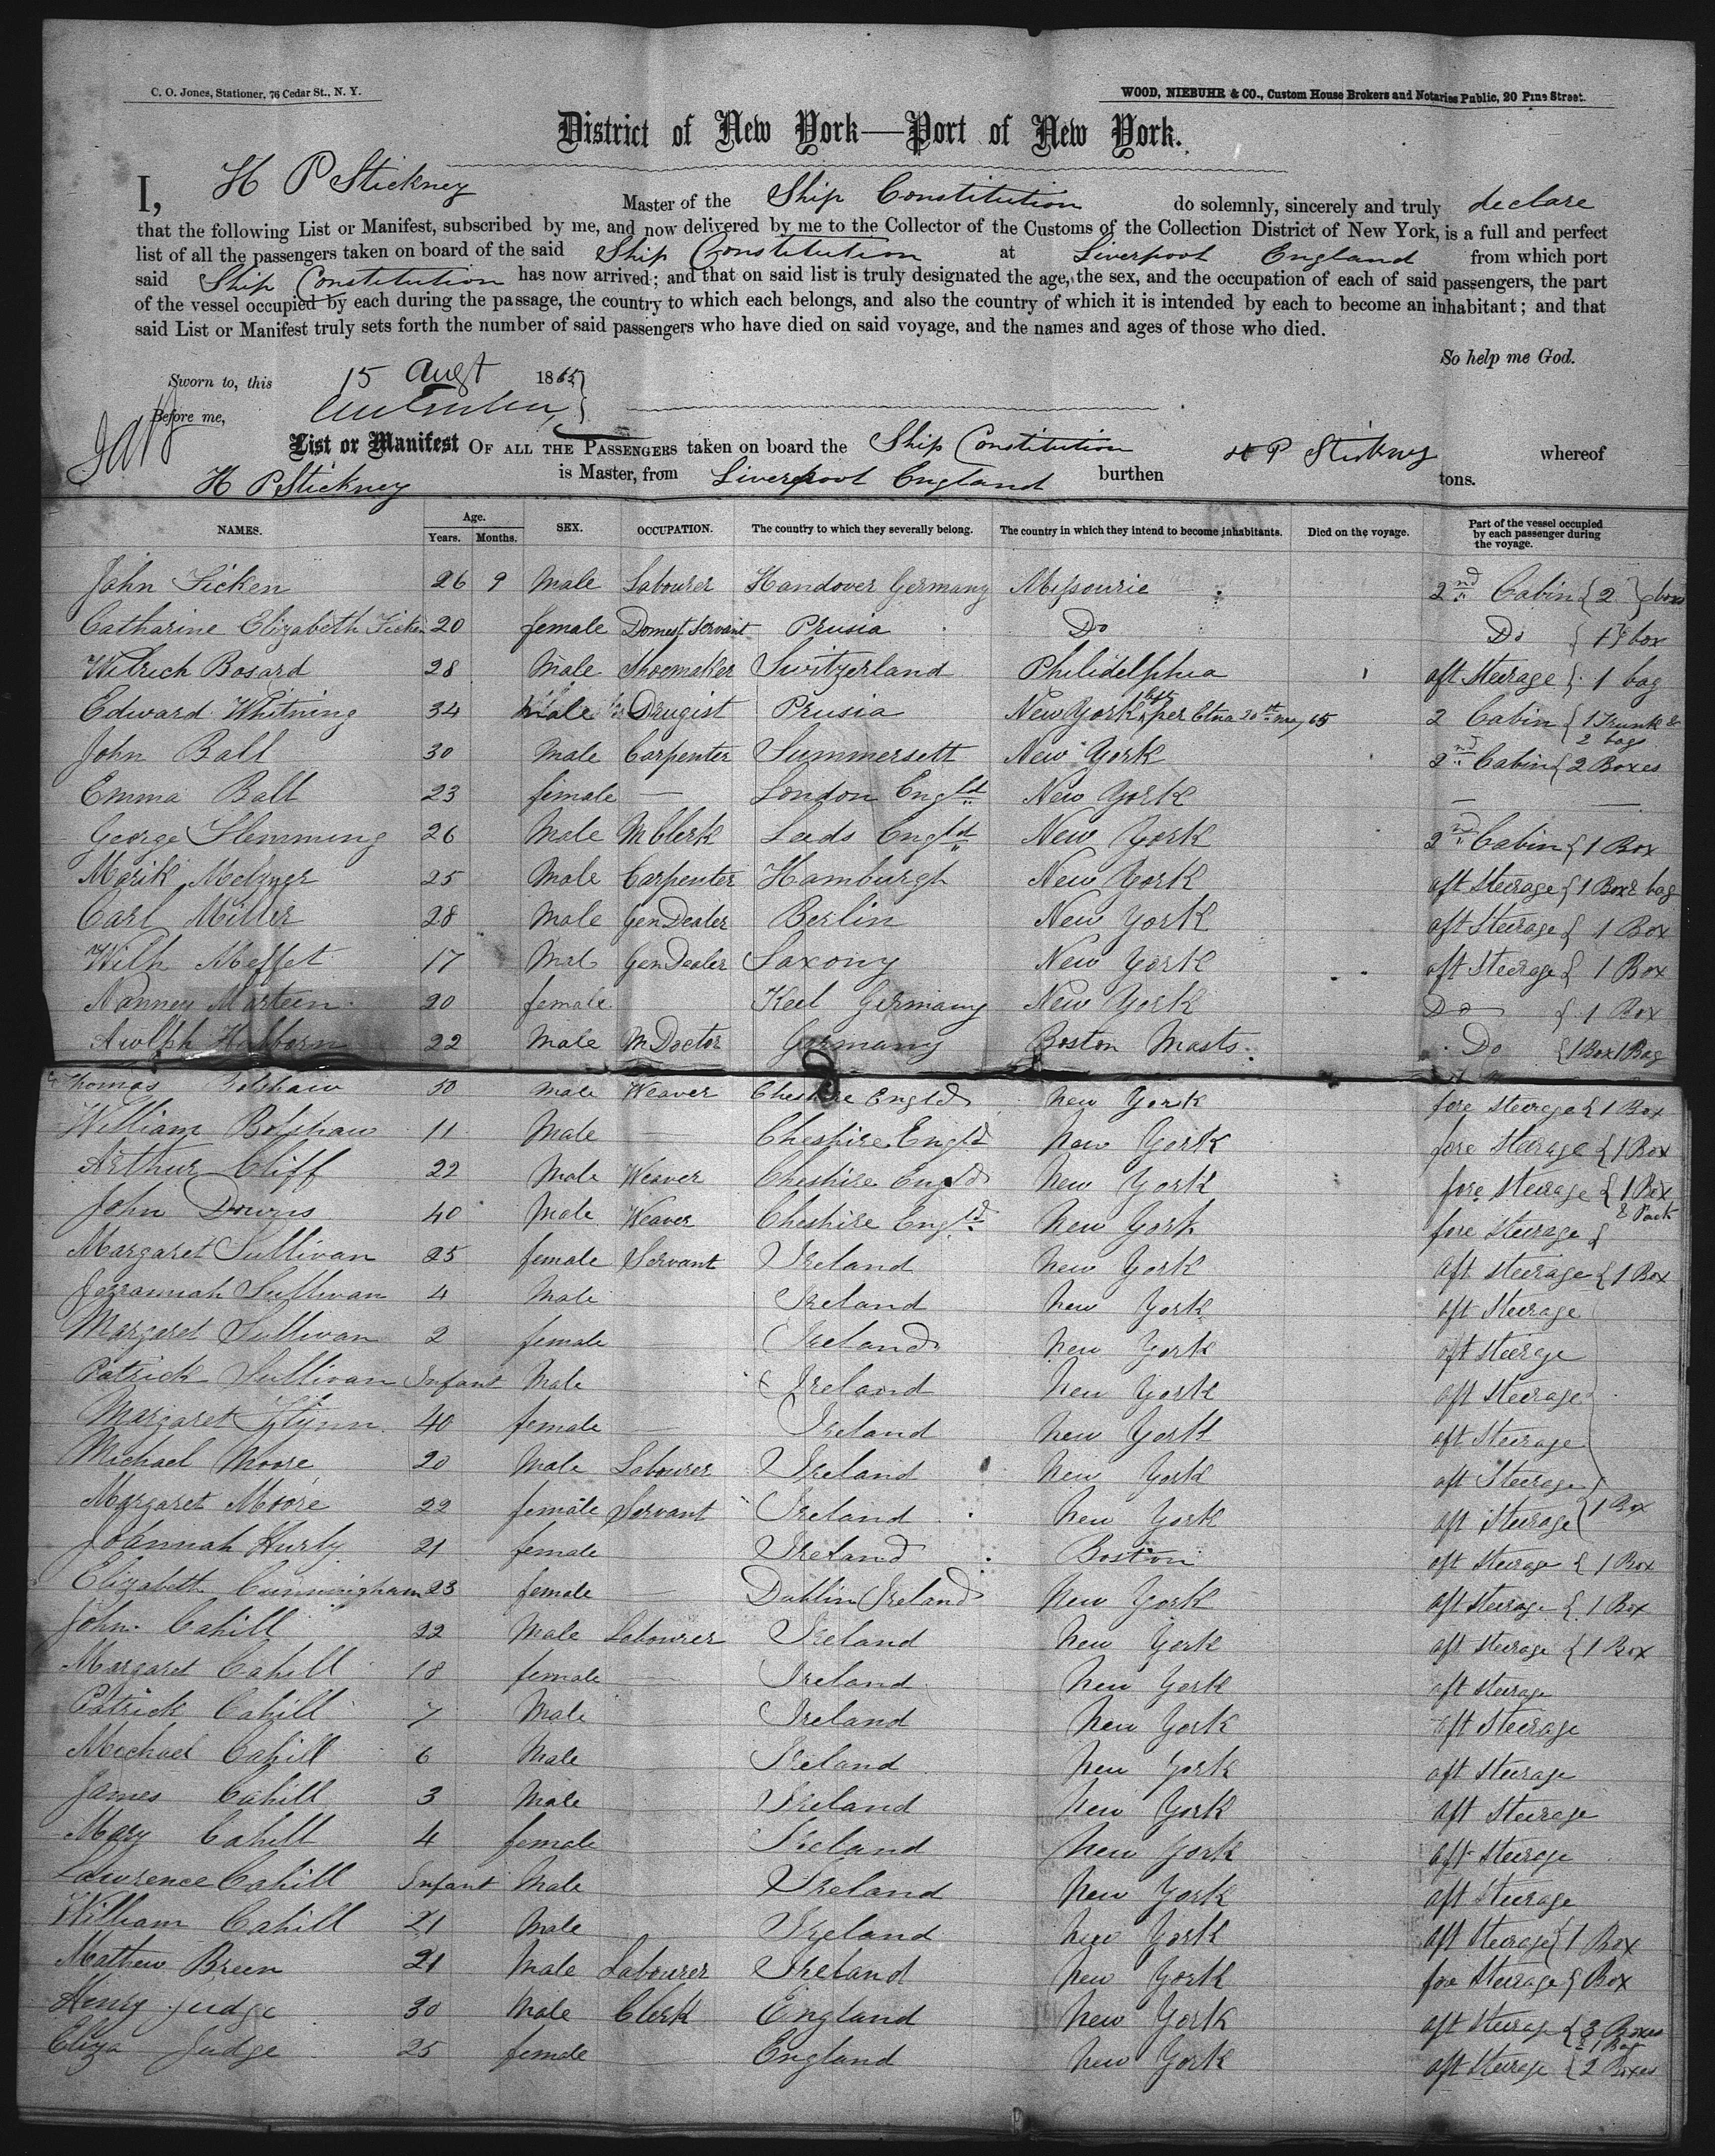 C. O. Jones, Stationer, 76 Cedar St., N. Y.
WOOD, NIEBUHR & CO., Custom House Brokers and Notaries Public, 20 Pine Street.
District of New York—Port of New York.
I, H P Stickney Master of the Ship Constitution do solemnly, sincerely and truly declare
that the following List or Manifest, subscribed by me, and now delivered by me to the Collector of the Customs of the Collection District of New York, is a full and perfect
list of all the passengers taken on board of the said Ship Constitution at Liverpool England from which port
said Ship Constitution has now arrived; and that on said list is truly designated the age, the sex, and the occupation of each of said passengers, the part
of the vessel occupied by each during the passage, the country to which each belongs, and also the country of which it is intended by each to become an inhabitant; and that
said List or Manifest truly sets forth the number of said passengers who have died on said voyage, and the names and ages of those who died.
So help me God.
Sworn to, this 15 Augt 1865
Before me,
List or Manifest OF ALL THE PASSENGERS taken on board the Ship Constitution H P Stickney whereof
H P Stickney is Master, from Liverpool England burthen tons.
NAMES. Age. Years. Months. SEX. OCCUPATION. The country to which they severally belong. The country in which they intend to become inhabitants. Died on the voyage. Part of the vessel occupied by each passenger during the voyage.
John Ficken 26 9 Male Labourer Handover Germany Missourie 2nd Cabin { 2 } box
Catharine Elizabeth Ficken 20 female Domest Servant Prusia Do Do { 1 } box
Witrich Bosard 28 Male Shoemaker Switzerland Philidelphia aft Steerage { 1 bag
Edward Whitning 34 Male Drugist Prusia New York per Etna 20th May 65 2 Cabin { 1 Trunk & 2 bags
John Ball 30 Male Carpenter Summersett New York 2nd Cabin { 2 Boxes
Emma Ball 23 female — London Engld New York — —
George Flemming 26 Male M Clerk Leeds Engld New York 2nd Cabin { 1 Box
Marik Melzner 25 Male Carpenter Hamburgh New York aft Steerage { 1 Box & bag
Carl Miller 28 Male Gen Dealer Berlin New York aft Steerage { 1 Box
Wilh Meffet 17 Mal Gen Dealer Saxony New York aft Steerage { 1 Box
Nanney Marteen 20 female Keel Germany New York Do { 1 Box
Adolph Holborn 22 Male M Doctor Germany Boston Masts. Do { 1 Box 1 Bag
Thomas Bolshaw 50 Male Weaver Cheshire Engld New York fore Steerage { 1 Box
William Bolshaw 11 Male — Cheshire Engld New York fore Steerage { 1 Box
Arthur Cliff 22 Male Weaver Cheshire Engld New York fore Steerage { 1 Box & Pack
John Downs 40 Male Weaver Cheshire Engld New York fore Steerage {
Margaret Sullivan 25 female Servant Ireland New York aft Steerage { 1 Box
Jerramiah Sullivan 4 Male Ireland New York aft Steerage
Margaret Sullivan 2 female Ireland New York aft Steerage
Patrick Sullivan Infant Male Ireland New York aft Steerage
Margaret Flynn 40 female — Ireland New York aft Steerage
Michael Moore 20 Male Labourer Ireland New York aft Steerage
Margaret Moore 22 female Servant Ireland New York aft Steerage { 1 Box
Johannah Hurly 21 female Ireland Boston aft Steerage { 1 Box
Elizabeth Cunningham 23 female — Dublin Ireland New York aft Steerage { 1 Box
John Cahill 22 Male Labourer Ireland New York aft Steerage { 1 Box
Margaret Cahill 18 female — Ireland New York aft Steerage
Patrick Cahill 7 Male — Ireland New York aft Steerage
Mechael Cahill 6 Male Ireland New York aft Steerage
James Cahill 3 Male Ireland New York aft Steerage
Mary Cahill 4 female Ireland New York aft Steerage
Lawrence Cahill Infant Male Ireland New York aft Steerage
William Cahill 21 Male Ireland New York aft Steerage { 1 Box
Mathew Breen 21 Male Labourer Ireland New York fore Steerage { Box
Henry Judge 30 Male Clerk England New York aft Steerage { 3 Boxes & 1 Bag
Eliza Judge 25 female — England New York aft Steerage { 2 Boxes